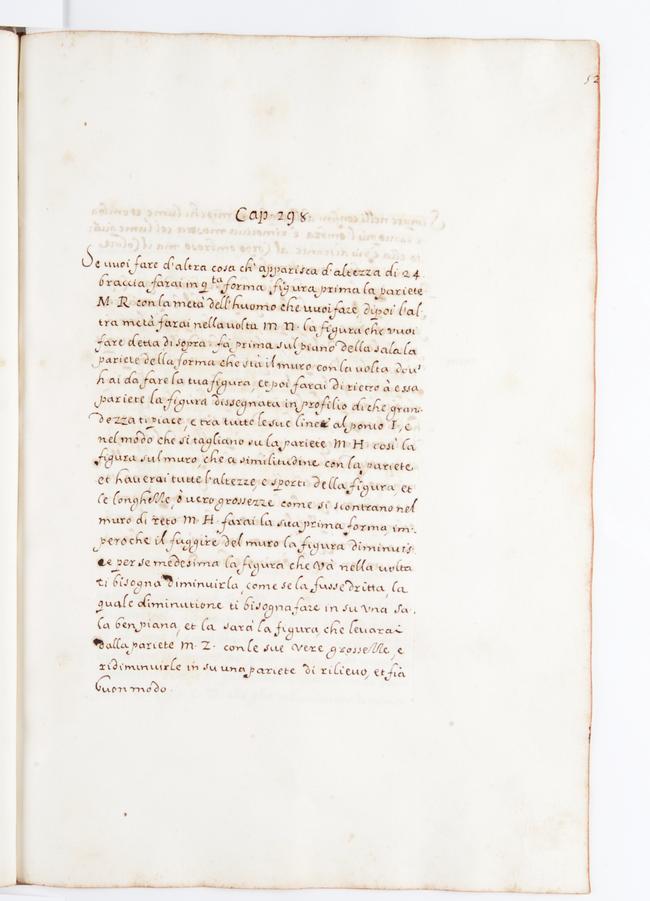 52
Cap. 298.
Se vuoi fare d'altra cosa ch'apparisca d'altezza di 24.
braccia farai in q.ta forma figura prima la pariete
M. R. con la metà dell'huomo che vuoi fare, dipoi l'al-
tra metà farai nella volta M. N. la figura che vuoi
fare detta di sopra. fa prima sul piano della sala la
pariete della forma che stà il muro con la volta dou'
hai da fare la tua figura, et poi farai di rietro à essa
pariete la figura dissegnata in profilio di che gran-
dezza ti piace, e tra tutto le sue linee al ponto I, e
nel modo che si tagliano su la pariete M. H. così la
figura sul muro, che a similitudine con la pariete
et hauerai tutte l'altezze, e sporti della figura, et
le longhezze, ò vero grossezze come si scontrano nel
muro di reto M. H. farai la sua prima forma, im-
peroche il fuggire del muro la figura diminuis-
ce per se medesima la figura che và nella volta
ti bisogna diminuirla, come se la fusse dritta, la
quale diminutione ti bisogna fare in su vna sa-
la ben piana, et la sarà la figura, che leuarai
dalla pariete M. Z. con le sue vere grossezze, e
ridiminuirle in su una pariete di rilieuo, et fia
buon modo.